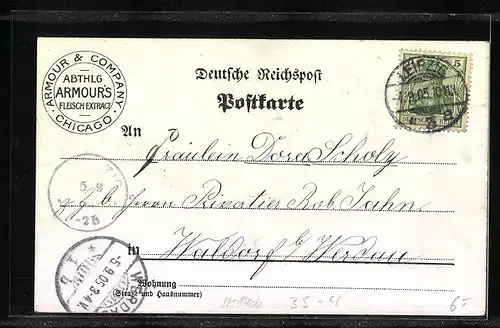 ARMOUR & COMPANY
ABTHLG
ARMOUR'S
FLEISCH EXTRACT
CHICAGO
Deutsche Reichspost
Postkarte
LEIPZIG
5
An
Fräulein Dora Scholz
z. Zt. b. Herrn Privatier Rob. Jahn
in
Waldorf b/ Werdau
Wohnung
(Straße und Hausnummer)
5 9
-2
WERDAU
5.9.05.3-4
35-4
6-